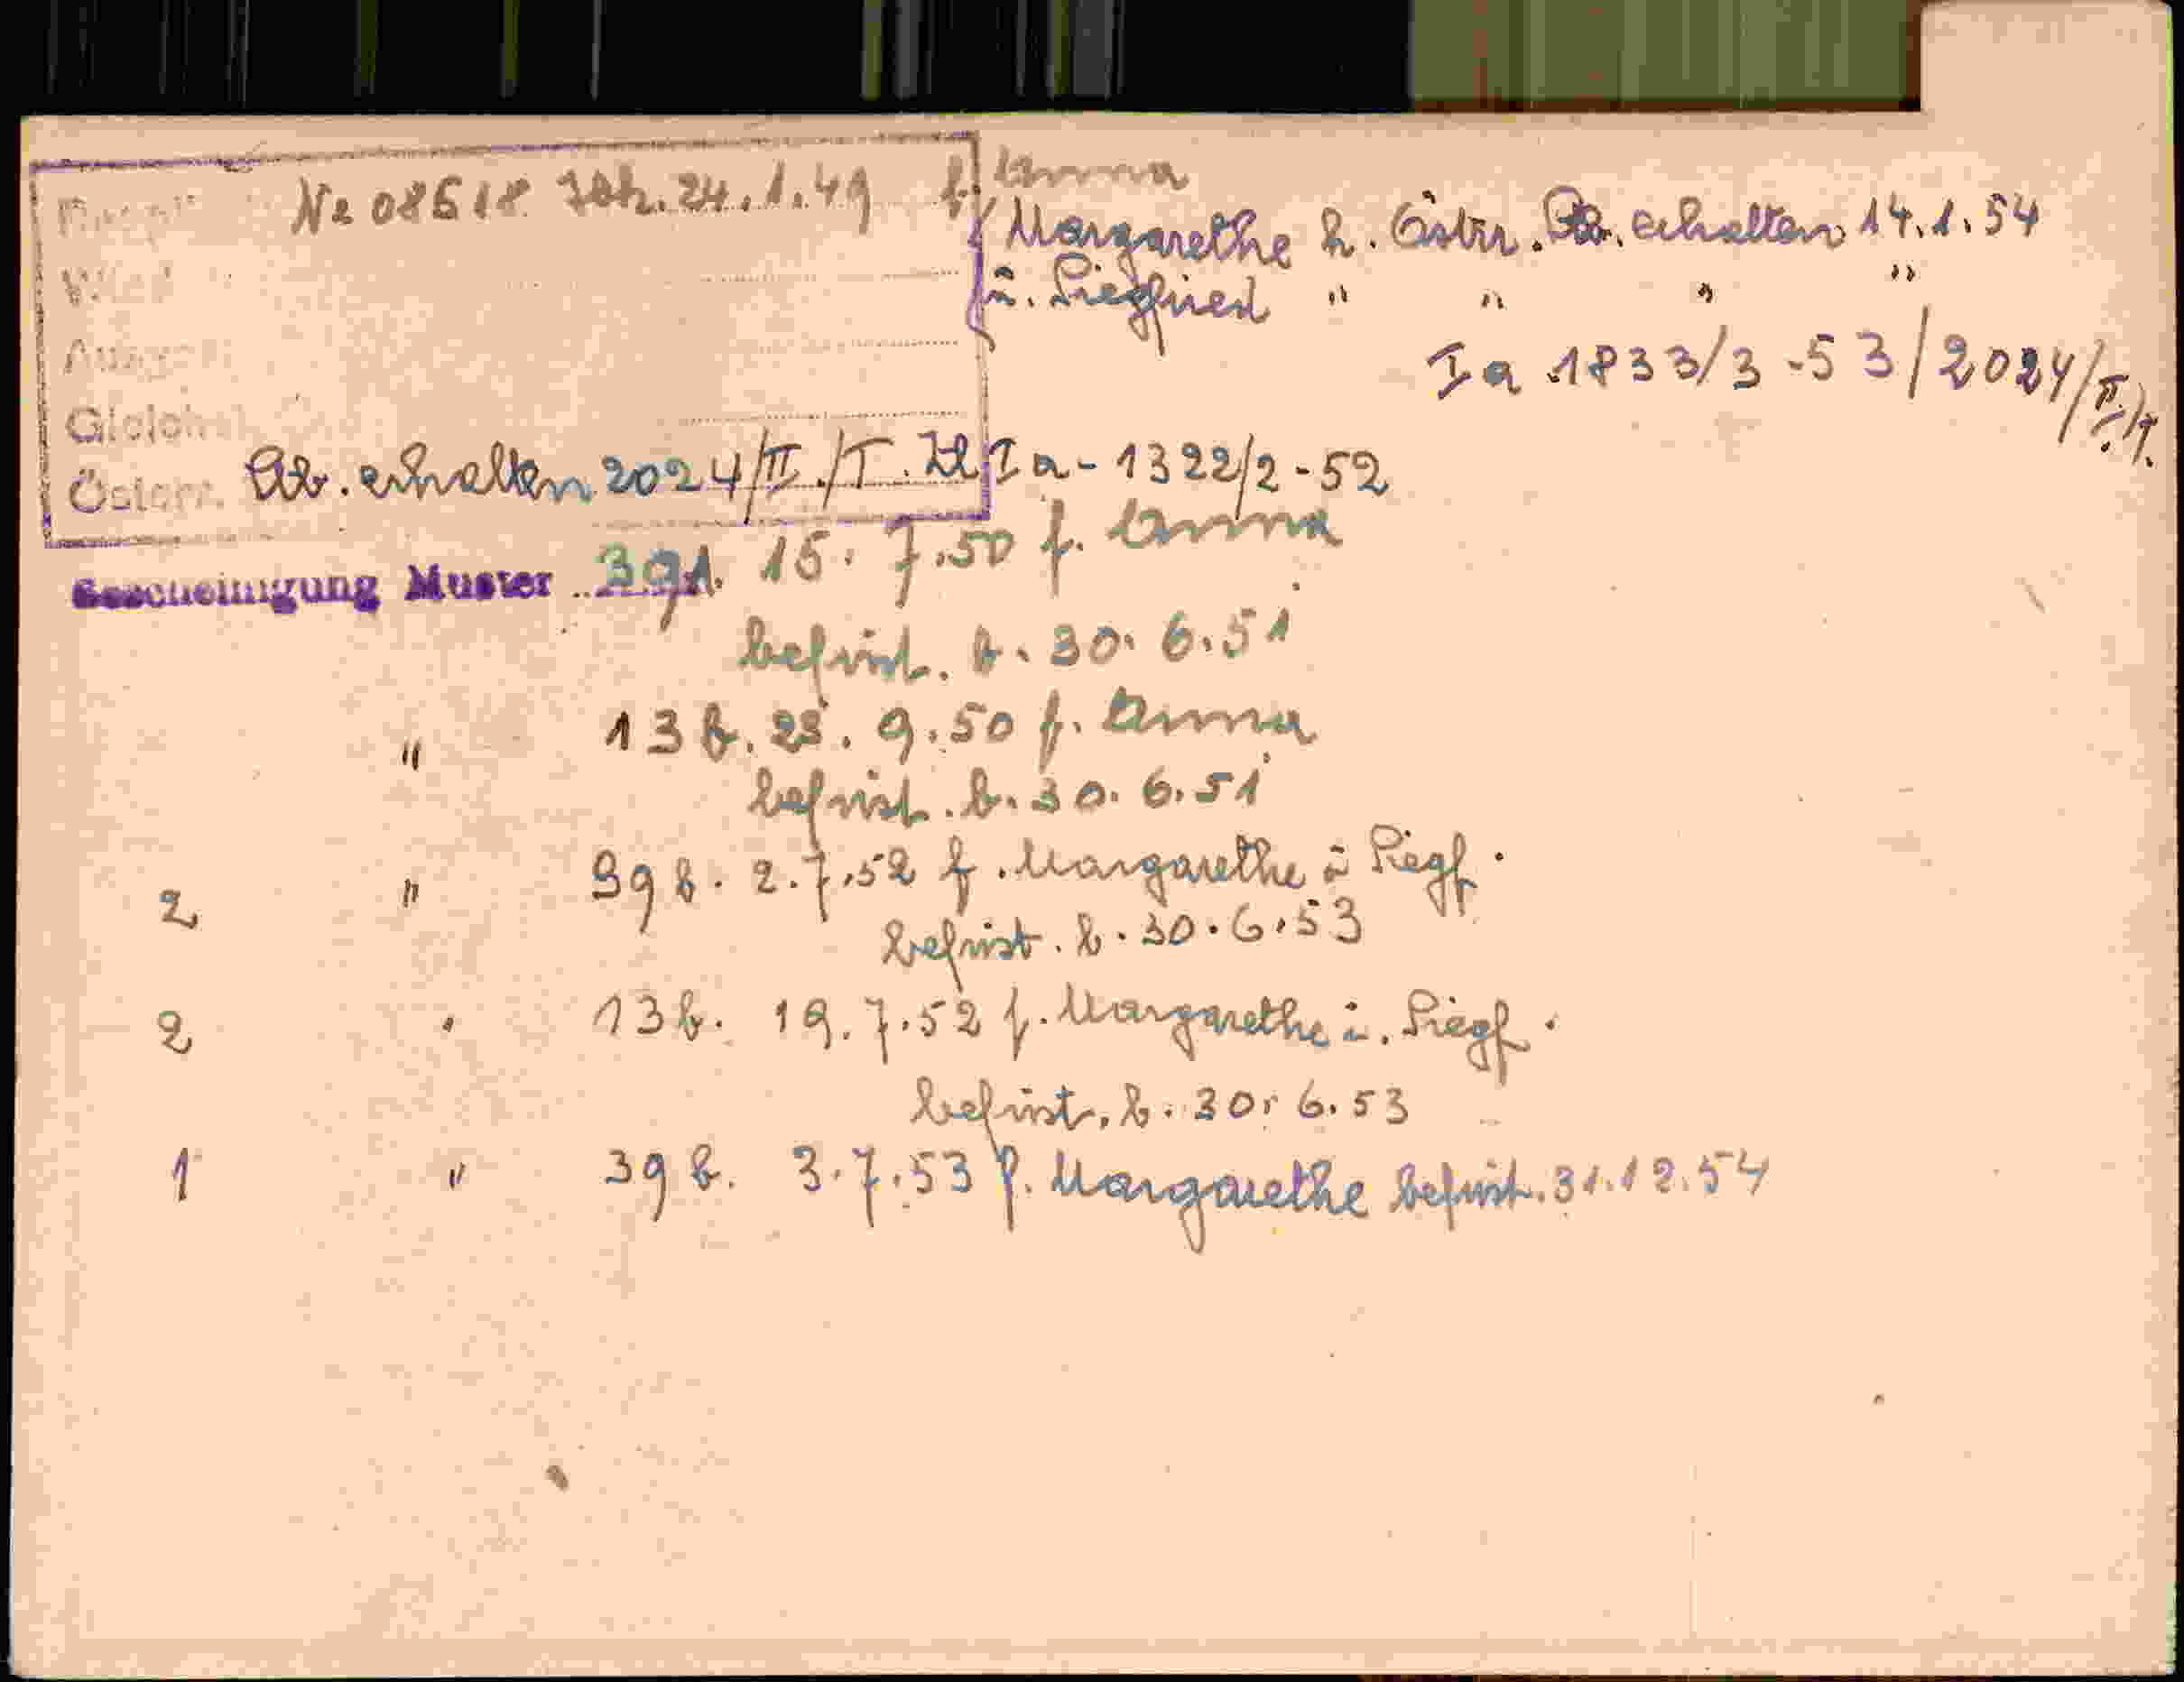 № 08518 24.1.49 f. Anna
Margarethe h. Östr. Stb. erhalten 14.1.54
u. Siegfried " " " "
Ia 1833/3-53/2024/II./T.
Gleich
Österr. Stb. erhalten 2024/II./T. Zl Ia-1322/2-52
Bescheinigung Muster 39 15. 7.50 f. Anna
befrist. b. 30. 6.51
" 13 b. 23. 9.50 f. Anna
befrist. b. 30. 6.51
2 " 39 b. 2.7.52 f. Margarethe u Siegf.
befrist. b. 30.6.53
2 " 13 b. 19.7.52 f. Margarethe u. Siegf.
befrist. b. 30.6.53
1 " 39 b. 3.7.53 f. Margarethe befrist. 31.12.54